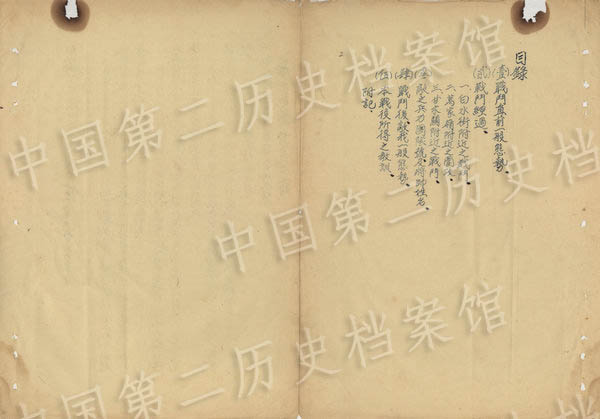 目錄
(壹)戰鬥直前一般態勢、
(貳)戰鬥經過、
一、白水街附近之戰鬥、
二、萬家嶺附近之圍攻、
三、甘木關附近之戰鬥、
(叁)敵之兵力團隊號及將帥姓名、
(肆)戰鬥後敵我一般態勢、
(伍)本戰役所得之教訓、
附記、
中国第二历史档案馆
中国第二历史档案馆
中国第二历史档案馆